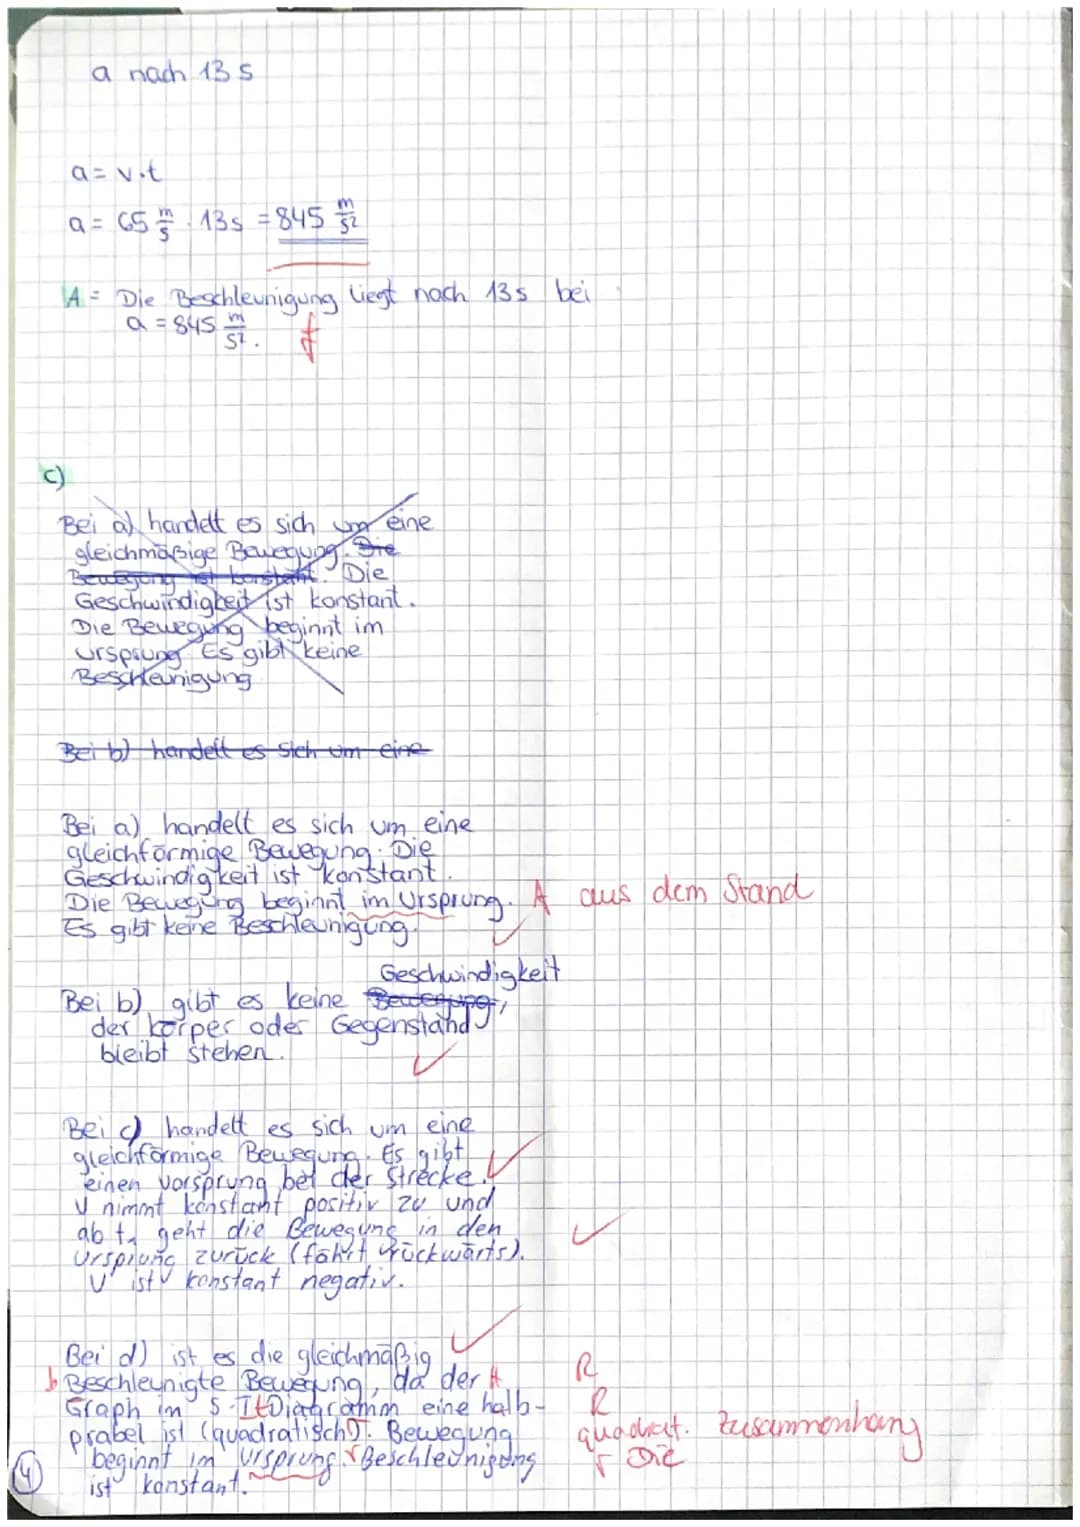 a nach 13 s
a = v·t
a = 65 m/s · 13s = 845 m/s²
A = Die Beschleunigung liegt nach 13s bei
a = 845 m/s². f
c)
Bei a) handelt es sich um eine
gleichmäßige Bewegung. Die
Bewegung ist konstant. Die
Geschwindigkeit ist konstant.
Die Bewegung beginnt im
Ursprung Es gibt keine
Beschleunigung
Bei b) handelt es sich um eine
Bei a) handelt es sich um eine
gleichförmige Bewegung. Die
Geschwindigkeit ist konstant.
Die Bewegung beginnt im Ursprung. A aus dem Stand
Es gibt keine Beschleunigung.
Geschwindigkeit
Bei b) gibt es keine Bewegung,
der körper oder Gegenstand
bleibt stehen.
Bei c) handelt es sich um eine
gleichförmige Bewegung. Es gibt
einen vorsprung bei der Strecke.
V nimmt konstant positiv zu und
ab t₁ geht die Bewegung in den
Ursprung zurück (fährt rückwärts).
V ist konstant negativ.
Bei d) ist es die gleichmäßig
b Beschleunigte Bewegung, da der A R
Graph im s-t Diagramm eine halb- R
prabel ist (quadratisch). Bewegung quadrat. Zusammenhang
beginnt im Ursprung. r Beschleunigung r Die
ist konstant.
4